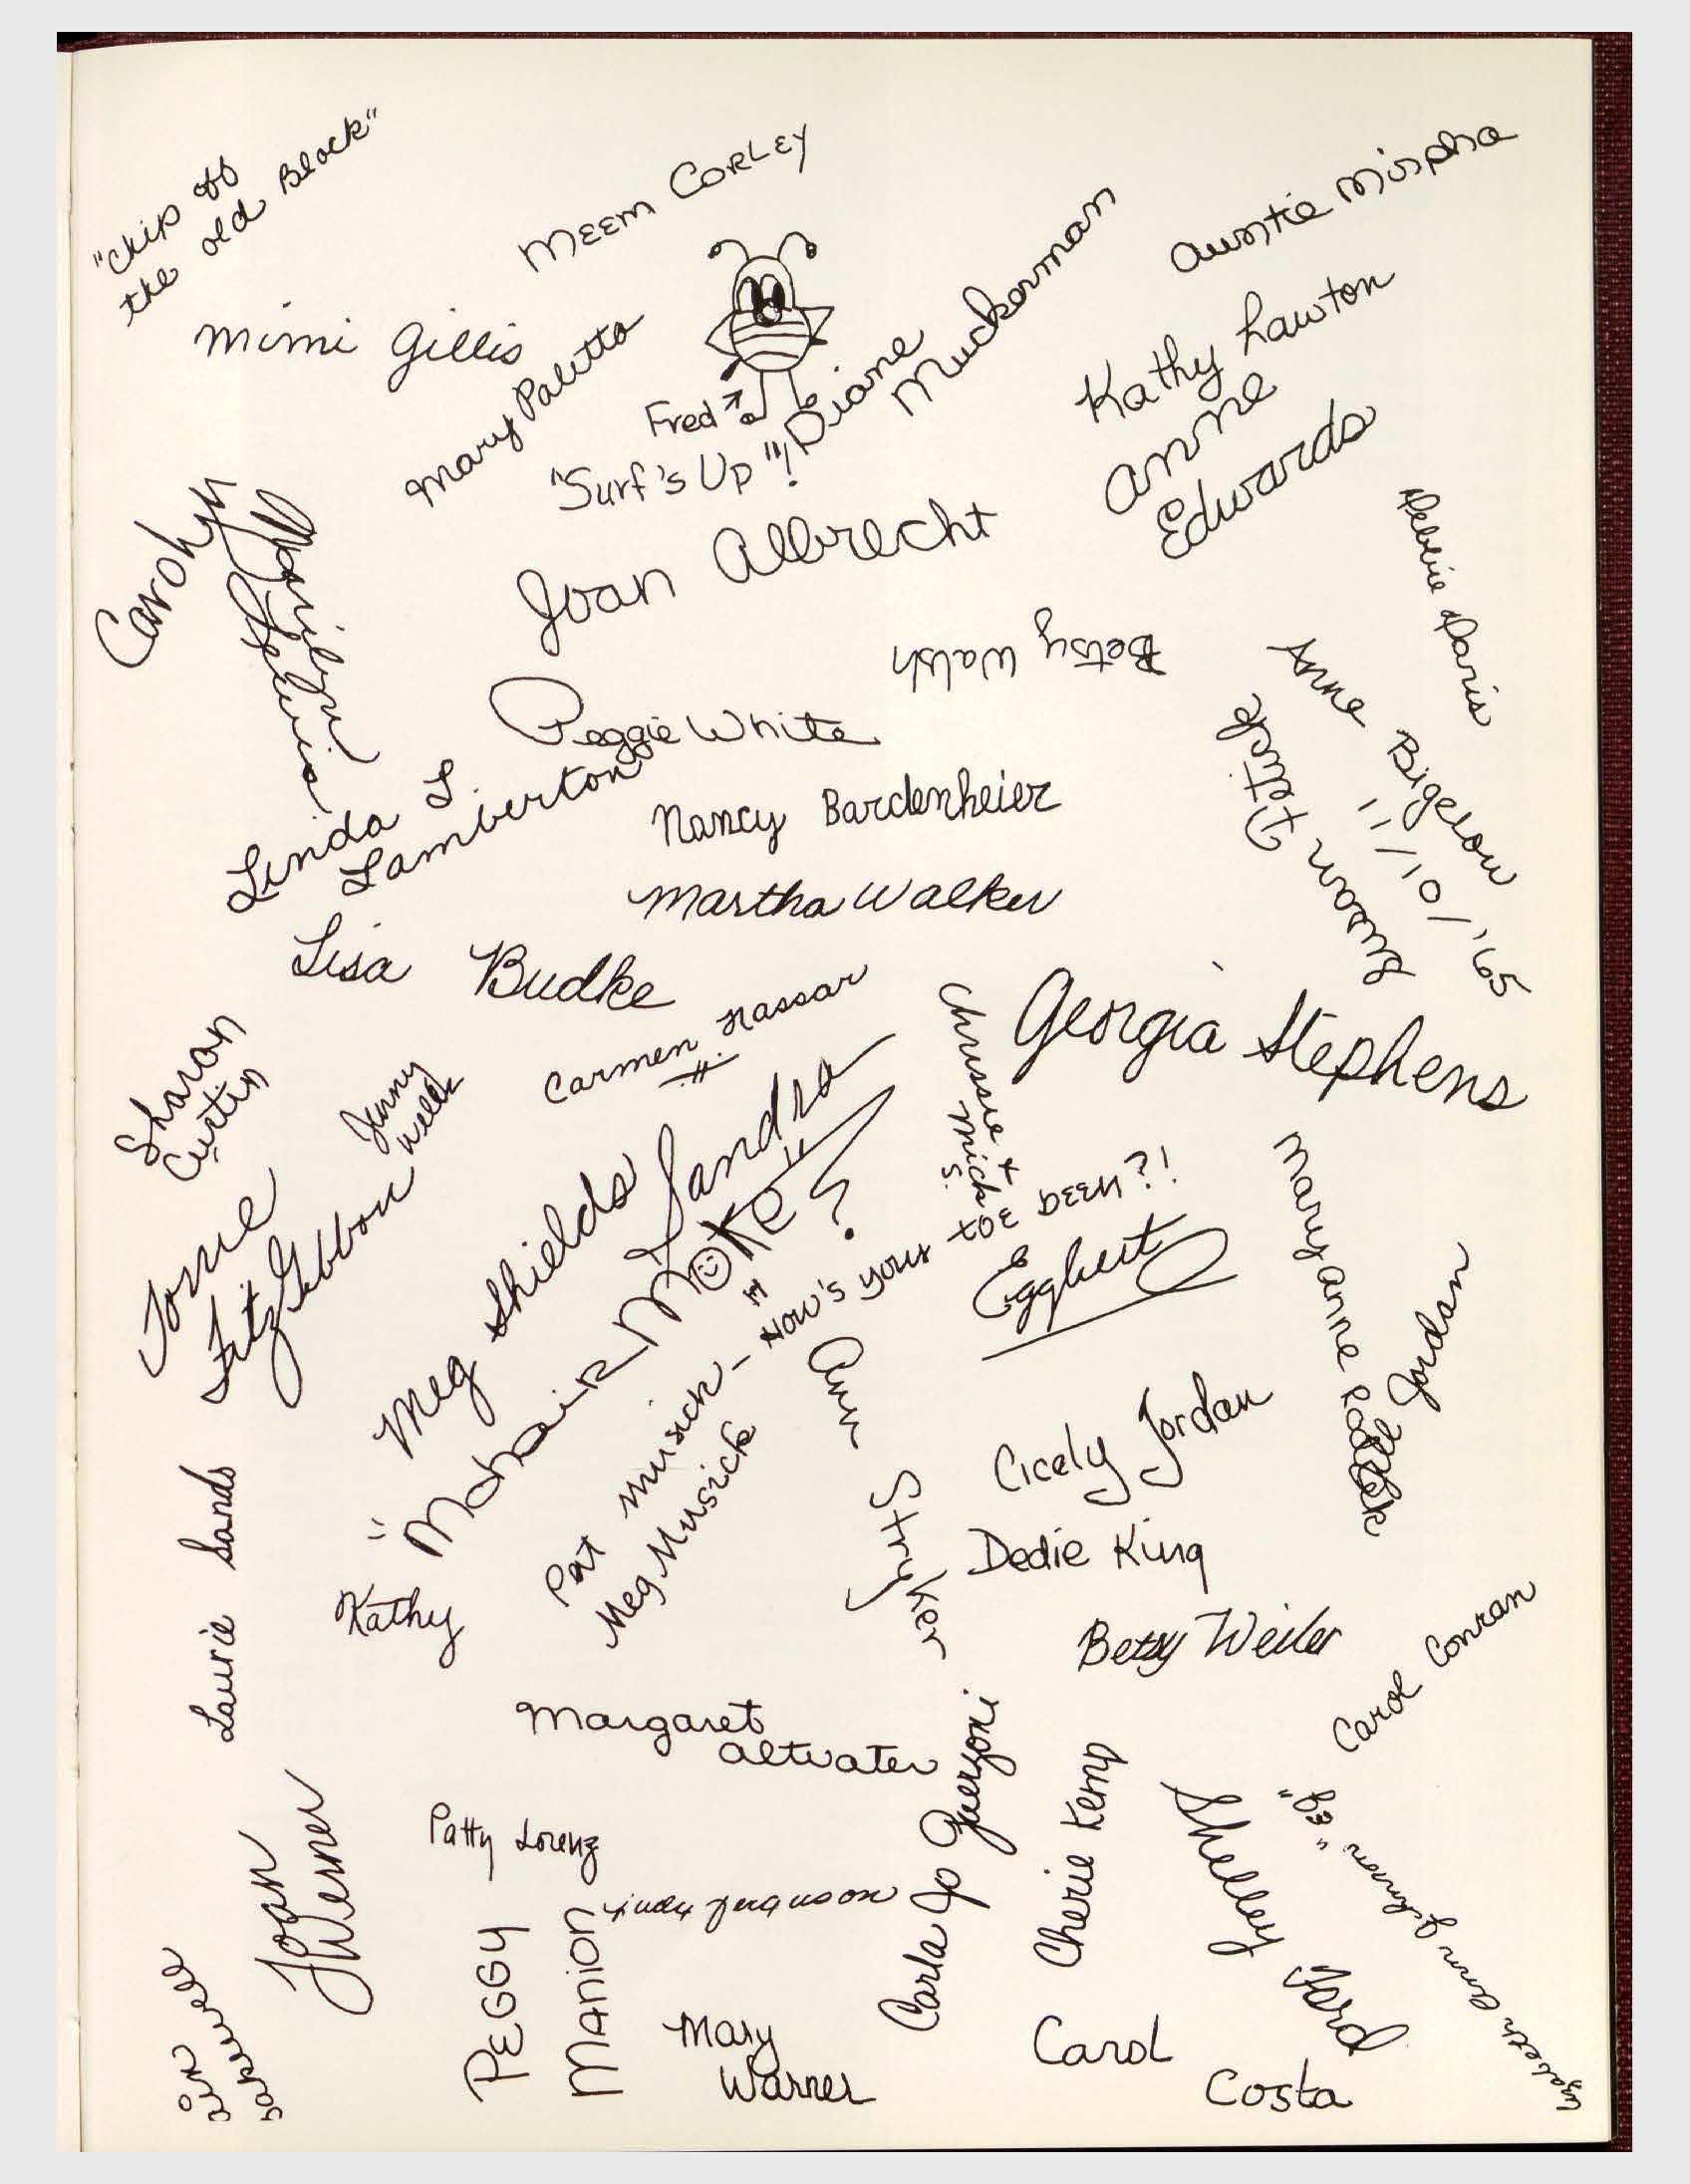 "Chip off
the old Block"
Meem Corley
Auntie Mispha
Mimi Gillis
Mary Paletta
Fred
"Surf's Up"!
Diane
Muckerman
Kathy Lawton
Anne
Edwards
Carolyn
Marilyn
Joan Albrecht
Debbie Davis
Betsy Walsh
Anne Bigelow
11/10/'65
Susan Tettick
Peggie White
Linda L.
Lamberton
Nancy Bardenheier
Martha Walker
Lisa Budke
Carmen Nassar
Georgia Stephens
Chrissie &
Mick
S.
Sharon
Curtin
Jenny
Welek
Torrie
FitzGibbon
Meg Shields
Sandra
Kathy "Mohair Moke"
Pat Musick - How's your toe been?!
Meg Musick
Eggbert
Ann
Stryker
Maryanne
Jordan
Cicely Jordan
Dedie King
Laurie Sands
Betsy Weiler
Carol Conran
Margaret
Altvater
Carla Jo Guerzoni
Cherie Kemp
Shelley Ford
Elizabeth Ann Johnson "EJ"
Patty Lorenz
Judy Ferguson
Joan
Werner
Peggy
Manion
Mary
Warner
Carol
Costa